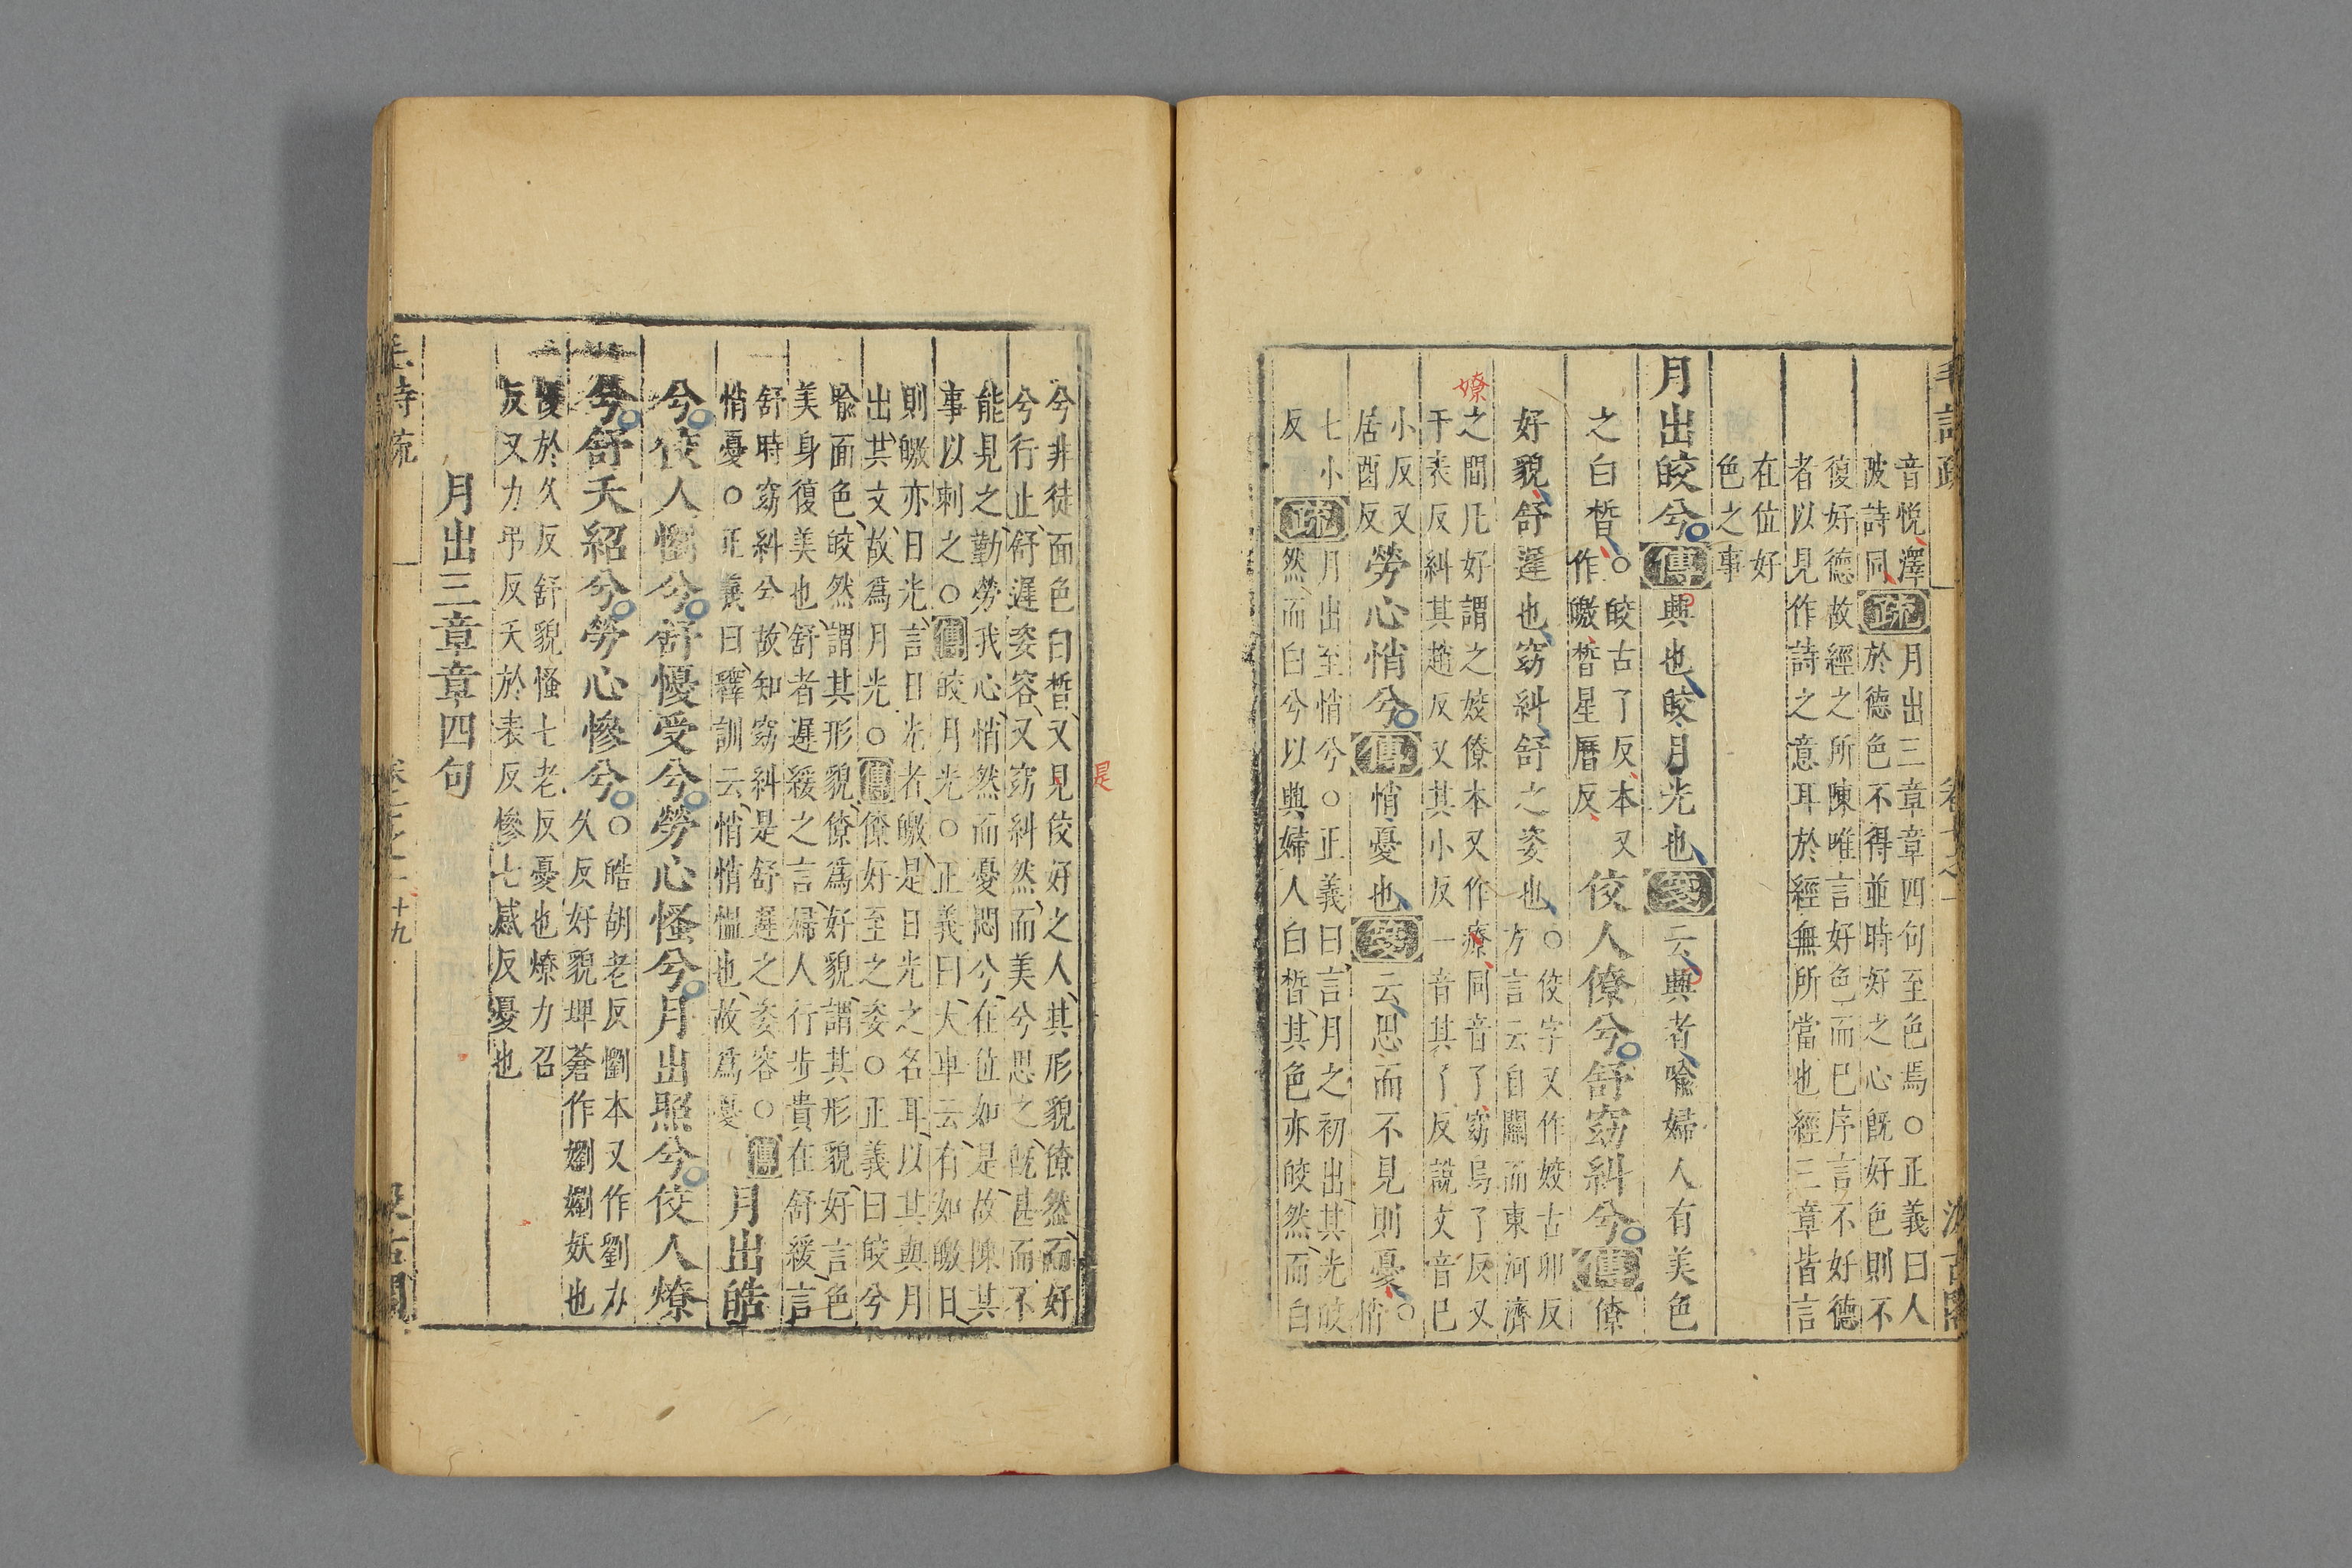 音悅澤
陂詩同疏月出三章章四句至色焉○正義曰人
於德色不得並時好之心既好色則不
復好德故經之所陳唯言好色而已序言不好德
者以見作詩之意耳於經無所當也經三章皆言
在位好
色之事
月出皎兮傳興也皎月光也箋云興者喻婦人有美色
之白晳○皎古了反本又
作皦晳星曆反佼人僚兮舒窈糾兮傳僚
好貌舒遲也窈糾舒之姿也○佼字又作姣古卯反
方言云自關而東河濟
之間凡好謂之姣僚本又作療同音了窈烏了反又
于表反糾其趙反又其小反一音其了反說文音已
嫽
小反又
居酉反勞心悄兮傳悄憂也箋云思而不見則憂○
悄
七小
反疏月出至悄兮○正義曰言月之初出其光皎
然而白兮以興婦人白晳其色亦皎然而白
兮非徒面色白晳又見佼好之人其形貌僚然而好
是
兮行止舒遲姿容又窈糾然而美兮思之既甚而不
能見之勤勞我心悄然而憂悶兮在位如是故陳其
事以刺之○傳皎月光○正義曰大車云有如皦日
則皦亦日光言日光者皦是日光之名耳以其與月
出共文故爲月光○傳僚好至之姿○正義曰皎兮
喻面色皎然謂其形貌僚爲好貌謂其形貌好言色
美身復美也舒者遲緩之言婦人行步貴在舒緩言
舒時窈糾兮故知窈糾是舒遲之姿容○傳
悄憂○正義曰釋訓云悄悄慍也故爲憂月出皓
兮佼人懰兮舒懮受兮勞心慅兮月出照兮佼人燎
兮舒夭紹兮勞心慘兮○皓胡老反懰本又作劉力
久反好貌埤蒼作嬼嬼妖也
懮於久反舒貌慅七老反憂也燎力召
反又力弔反夭於表反慘七感反憂也
月出三章章四句
十九